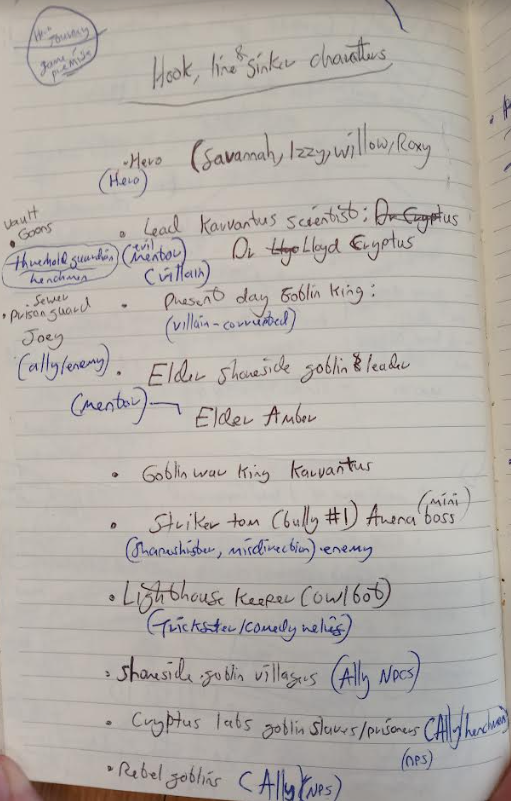 Hero
Journey
game
premise
Hook, line & Sinker characters
• Hero (Savannah, Izzy, Willow, Roxy
(Hero)
Vault
• Goons
threshold guardian
henchmen
• Lead Karvantus scientist: Dr Cryptus
(evil mentor)
Dr Lloyd Cryptus
(villain)
sewer
• prison guard
Joey
(ally/enemy)
• Present day Goblin King:
(villain - corrupted)
• Elder Shoreside goblin & leader
(mentor)
Elder Amber
• Goblin war King Karvantus
• Striker tom (bully #1) Arena (mini) boss
(Shapeshifter, misdirection) - enemy
• Lighthouse Keeper (owl bot)
(Trickster/comedy relief)
• Shoreside goblin villagers (Ally NPCS)
• Cryptus labs goblin slaves/prisoners (Ally/henchmen)
(nps)
• Rebel goblins (Ally) (NPS)